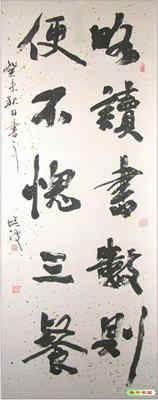 略讀書數則
便不愧三餐
癸未秋日書之